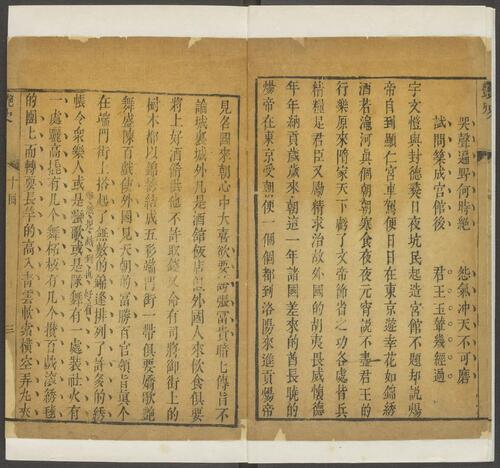 哭聲遍野何時絶　怨氣冲天不可磨
試問築成宮館後　君王玉輦幾經過
宇文愷與封德彝日夜坑民起造宮館不題却說煬
帝自到顯仁宮車駕便日日在東京遊幸花如錦綉
酒若澠河與個朝朝寒食夜夜元宵說不盡君王的
行樂原來隋家天下虧了文帝節省之功各處皆兵
精糧足君臣又勵精求治故外國的胡夷畏威懷德
年年納貢歲歲來朝這一年諸國差來的酋長曉的
煬帝在東京受朝便一個個都到洛陽來進貢煬帝
艷史
見各國來朝心中大喜欲要誇張富貴暗七傳旨不
論城裏城外凡是酒館飯店但外國人來飲食俱要
將上好酒餚供他不許取錢又命有司將御街上的
樹木都以錦綉結成五彩端門街一帶俱要嬌歌艶
舞盛陳百戲使外國見天朝的富勝百官領旨真個
在端門街上搭起了無數的錦逢排列了許多的綉
帳令衆樂人或是蠻歌或是隊舞有一處裝社火有
一處躧高蹺有几个舞柘枝有几个攤百戲滾綉毬
的團上而轉耍長竿的高入青雲軟索橫空弄丸夾
艷史
十回
三